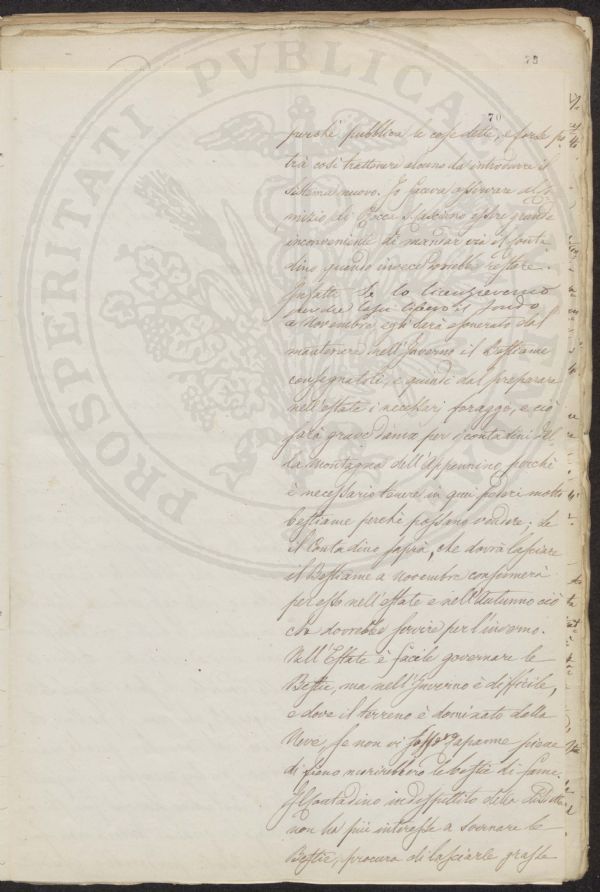 73
70
PROSPERITATI PVBLICAE
perchè pubblica le cose dette, e forse po
trà così trattenere alcuno da introdurre il
sistema nuovo. Io faceva osservare al
di Rocca S. Casciano essere grande
inconveniente di mandar via il Conta
dino, quando invece dovrebbe restare.
Infatti Se lo licenzieremo
perchè lasci libero il fondo
a novembre, egli sarà esonerato dal
mantenere nell'Inverno il Bestiame
consegnatoli, e quindi dal preparare
nell'estate i necessari foraggi, e ciò
sarà grave danno per i contadini del
la montagna dell'Appennino, perchè
è necessario tenere in quei poderi molto
bestiame perchè possano vendere; se
il Contadino saprà, che dovrà lasciare
il Bestiame a novembre consumerà
per esso nell'estate e nell'Autunno ciò
che dovrebbe servire per l'inverno.
Nell'Estate è facile governare le
Bestie, ma nell'Inverno è difficile,
e dove il terreno è dominato dalla
Neve, se non vi fossero capanne piene
di fieno morirebbero le bestie di fame.
Il Contadino indispettito della Disdetta
non ha più interesse a svernare le
Bestie, procura di lasciarle grasse